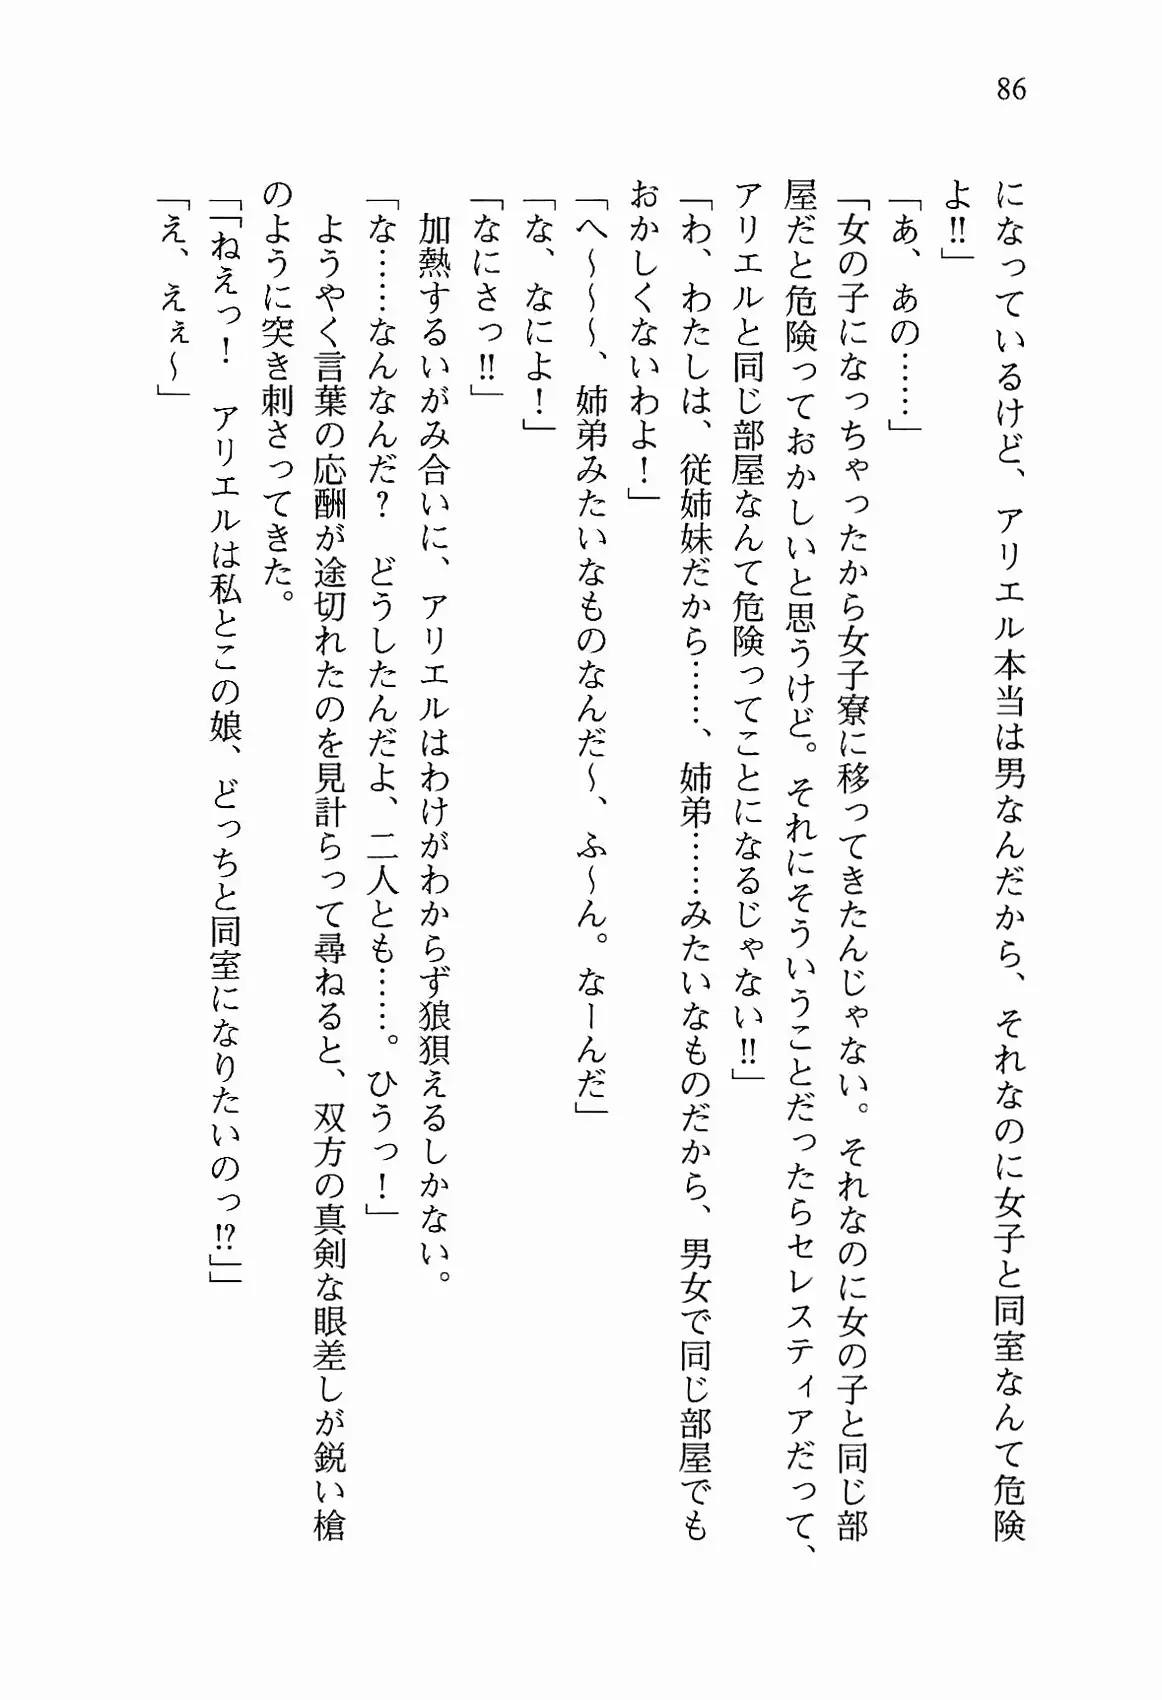 86
になっているけど、アリエル本当は男なんだから、それなのに女子と同室なんて危険
よ!!」
「あ、あの……」
「女の子になっちゃったから女子寮に移ってきたんじゃない。それなのに女の子と同じ部
屋だと危険っておかしいと思うけど。それにそういうことだったらセレスティアだって、
アリエルと同じ部屋なんて危険ってことになるじゃない!!」
「わ、わたしは、従姉妹だから……、姉弟……みたいなものだから、男女で同じ部屋でも
おかしくないわよ！」
「へ～～～、姉弟みたいなものなんだ～、ふ～ん。なーんだ」
「な、なによ！」
「なにさっ!!」
　加熱するいがみ合いに、アリエルはわけがわからず狼狽えるしかない。
「な……なんなんだ？　どうしたんだよ、二人とも……。ひうっ！」
　ようやく言葉の応酬が途切れたのを見計らって尋ねると、双方の真剣な眼差しが鋭い槍
のように突き刺さってきた。
「「ねえっ！　アリエルは私とこの娘、どっちと同室になりたいのっ!?」」
「え、えぇ～」